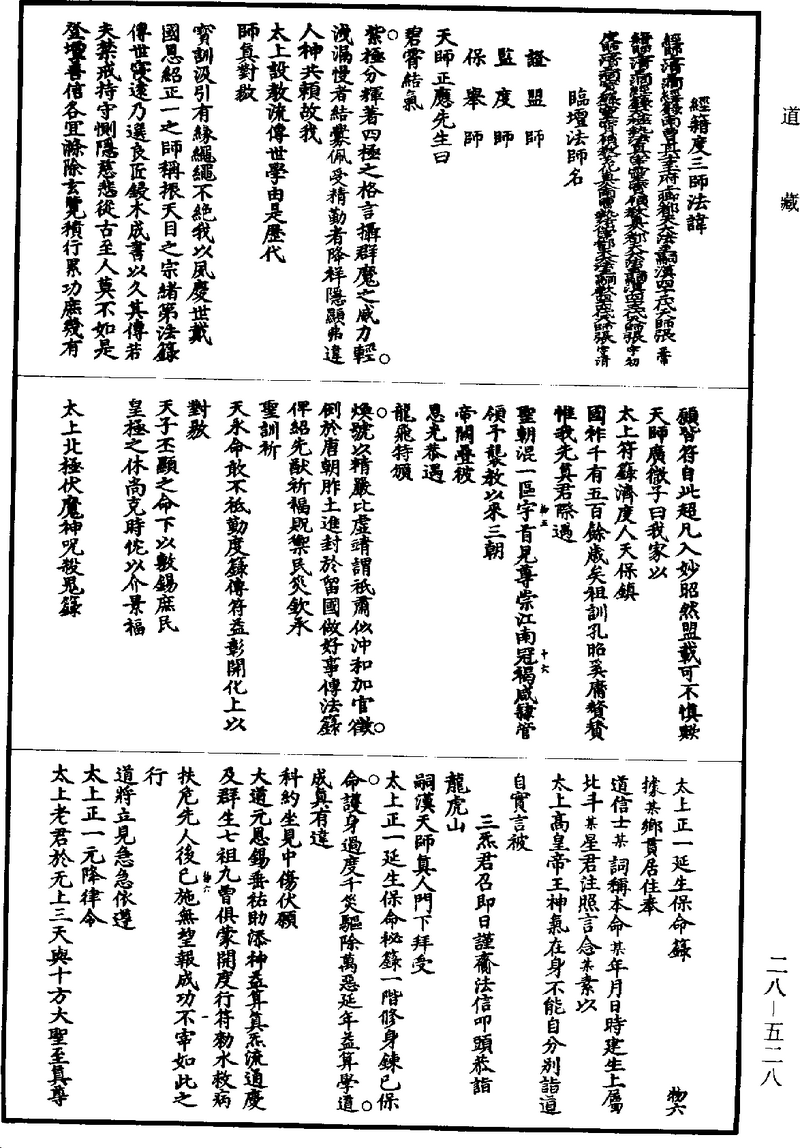 道藏
經籍度三師法諱
臨壇法師名
證盟師
監度師
保舉師
天師正應先生曰
碧霄結氣
紫極分輝著四極之格言攝群魔之威力輕
洩漏慢者結釁佩受精勤者降祥隱顯弗違
人神共賴故我
太上設教流傳世學由是歷代
師真對敭
寶訓汲引有緣繩繩不絕我以夙慶世戴
國恩紹正一之師稱振天目之宗緒第法籙
傳世寖遠乃選良匠鋟木成書以久其傳若
夫禁戒持守惻隱慈悲從古至人莫不如是
登壇善信各宜滌除玄覽積行累功庶幾有
顧皆符自此超凡入妙昭然盟載可不慎歟
天師廣微子曰我家以
太上符籙濟度人天保鎮
國祚千有五百餘歲矣祖訓孔昭奚庸贅贅
惟我先真君際遇
聖朝混一區宇首見尊崇江南冠褐咸隸管
領予襲教以來三朝
帝闕疊被
恩光恭遇
龍飛特頒
煥號以精嚴比虛靖謂祇肅似沖和加官徵
例於唐朝胙土進封於留國做好事傳法籙
俾紹先猷祈福民災欽承
聖訓祈
天永命敢不祗勤度籙傳符益彰開化上以
對敭
天子丕顯之命下以敷錫庶民
皇極之休尚克時忱以介景福
太上北極伏魔神呪殺鬼籙
太上正一延生保命籙
據某鄉貫居住奉
道信士某詞稱本命某年月日時建生上屬
北斗某星君注照言念某素以
太上高皇帝王神氣在身不能自分別詣道
自實言被
三炁君召即日謹齋法信叩頭恭詣
龍虎山
嗣漢天師真人門下拜受
太上正一延生保命秘籙一階修身鍊己保
命護身過度千災驅除萬惡延年益算學道
成真有違
科約坐見中傷伏願
大道元恩錫垂祐助添神益算真炁流通慶
及群生七祖九曾俱蒙開度行符勑水救病
扶危先人後己施無望報成功不宰如此之
行
道將立見急急依遵
太上正一元降律令
太上老君於无上三天與十方大聖至真尊
二八—五二八
物六